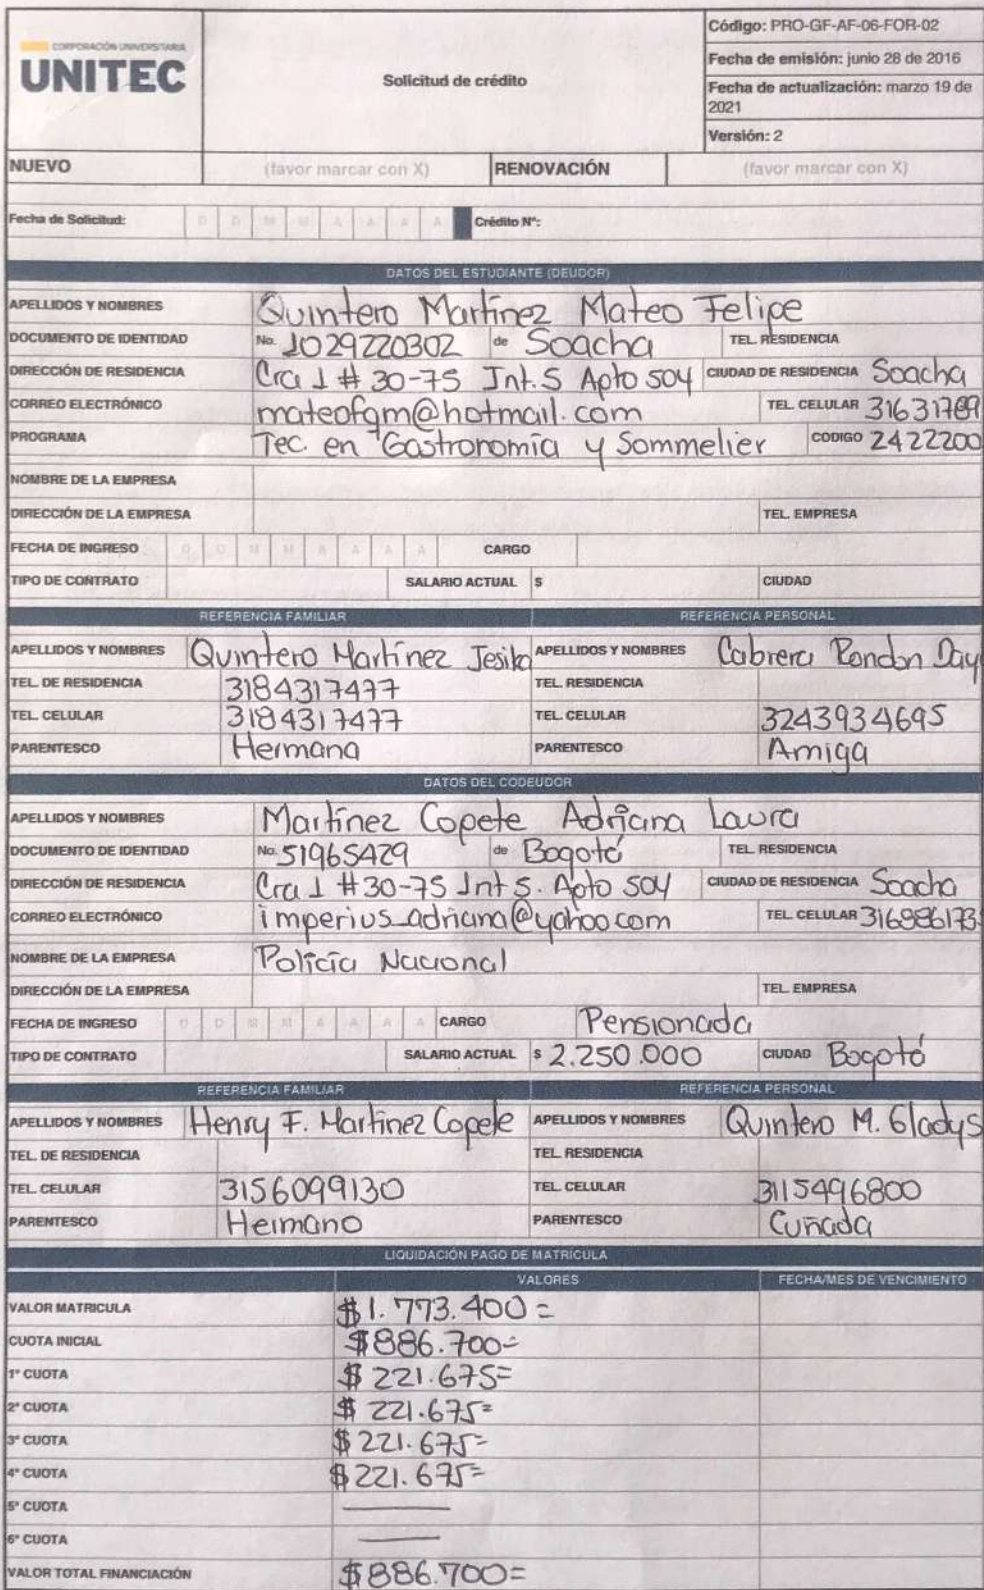 CORPORACIÓN UNIVERSITARIA
UNITEC
Solicitud de crédito
Código: PRO-GF-AF-06-FOR-02
Fecha de emisión: junio 28 de 2016
Fecha de actualización: marzo 19 de 2021
Versión: 2
NUEVO (favor marcar con X) RENOVACIÓN (favor marcar con X)
Fecha de Solicitud: D D M M A A A A Crédito N°:
DATOS DEL ESTUDIANTE (DEUDOR)
APELLIDOS Y NOMBRES Quintero Martínez Mateo Felipe
DOCUMENTO DE IDENTIDAD No. 1029220302 de Soacha TEL. RESIDENCIA
DIRECCIÓN DE RESIDENCIA Cra 1 # 30-75 Int. 5 Apto 504 CIUDAD DE RESIDENCIA Soacha
CORREO ELECTRÓNICO mateofqm@hotmail.com TEL. CELULAR 31631789
PROGRAMA Tec. en Gastronomía y Sommelier CODIGO 2422200
NOMBRE DE LA EMPRESA
DIRECCIÓN DE LA EMPRESA TEL. EMPRESA
FECHA DE INGRESO D D M M A A A A CARGO
TIPO DE CONTRATO SALARIO ACTUAL $ CIUDAD
REFERENCIA FAMILIAR REFERENCIA PERSONAL
APELLIDOS Y NOMBRES Quintero Martínez Jesika APELLIDOS Y NOMBRES Cabrera Rondon Day
TEL. DE RESIDENCIA 3184317477 TEL. RESIDENCIA
TEL. CELULAR 3184317477 TEL. CELULAR 3243934695
PARENTESCO Hermana PARENTESCO Amiga
DATOS DEL CODEUDOR
APELLIDOS Y NOMBRES Martínez Copete Adriana Laura
DOCUMENTO DE IDENTIDAD No. 51965429 de Bogotá TEL. RESIDENCIA
DIRECCIÓN DE RESIDENCIA Cra 1 #30-75 Int 5. Apto 504 CIUDAD DE RESIDENCIA Soacha
CORREO ELECTRÓNICO imperius_adriana@yahoo.com TEL. CELULAR 316986173
NOMBRE DE LA EMPRESA Policía Nacional
DIRECCIÓN DE LA EMPRESA TEL. EMPRESA
FECHA DE INGRESO D D M M A A A A CARGO Pensionada
TIPO DE CONTRATO SALARIO ACTUAL $ 2.250.000 CIUDAD Bogotá
REFERENCIA FAMILIAR REFERENCIA PERSONAL
APELLIDOS Y NOMBRES Henry F. Martinez Copete APELLIDOS Y NOMBRES Quintero M. Gladys
TEL. DE RESIDENCIA TEL. RESIDENCIA
TEL. CELULAR 3156099130 TEL. CELULAR 3115496800
PARENTESCO Hermano PARENTESCO Cuñada
LIQUIDACIÓN PAGO DE MATRÍCULA
VALORES FECHA/MES DE VENCIMIENTO
VALOR MATRICULA $1.773.400=
CUOTA INICIAL $886.700=
1° CUOTA $221.675=
2° CUOTA $221.675=
3° CUOTA $221.675=
4° CUOTA $221.675=
5° CUOTA
6° CUOTA
VALOR TOTAL FINANCIACIÓN $886.700=